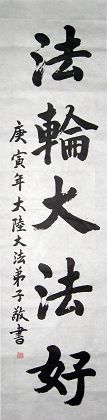 法輪大法好
庚寅年大陸大法弟子敬書